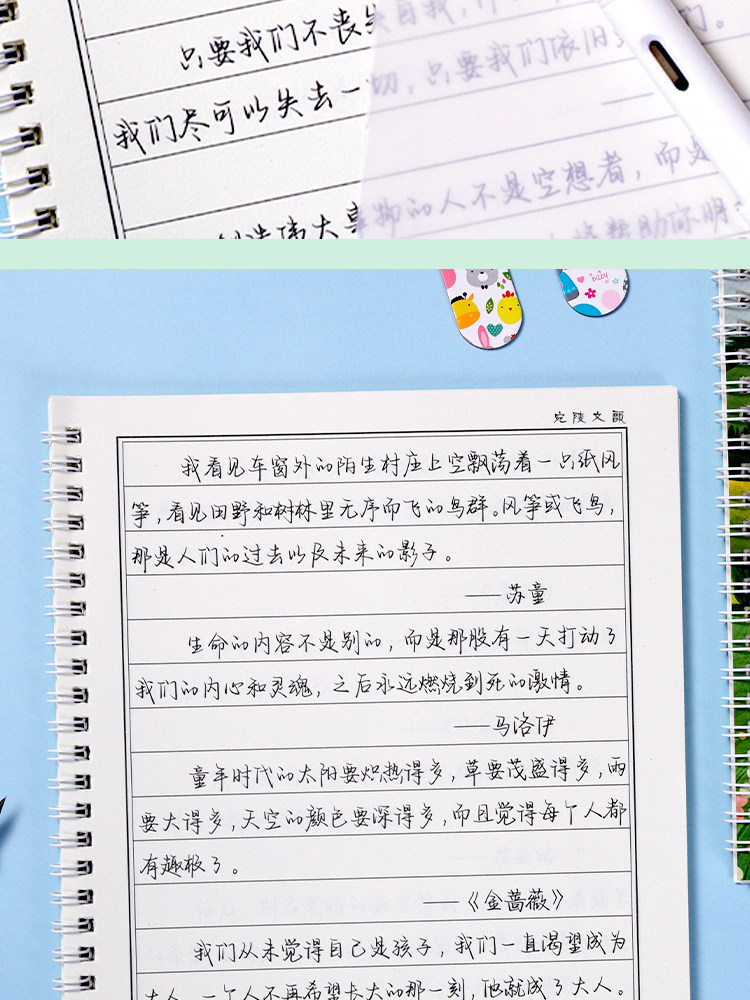 只要我们不丧失自我,
我们尽可以失去一切,只要我们依旧
的人不是空想者,而是
创造伟大
帮助你明
baby
宛陵文颢
我看见车窗外的陌生村庄上空飘荡着一只纸风
筝,看见田野和树林里无序而飞的鸟群。风筝或飞鸟,
那是人们的过去以及未来的影子。
——苏童
生命的内容不是别的,而是那股有一天打动了
我们的内心和灵魂,之后永远燃烧到死的激情。
——马洛伊
童年时代的太阳要炽热得多,草要茂盛得多,雨
要大得多,天空的颜色要深得多,而且觉得每个人都
有趣极了。
——《金蔷薇》
我们从未觉得自己是孩子,我们一直渴望成为
大人。一个人不再希望长大的那一刻,他就成了大人。